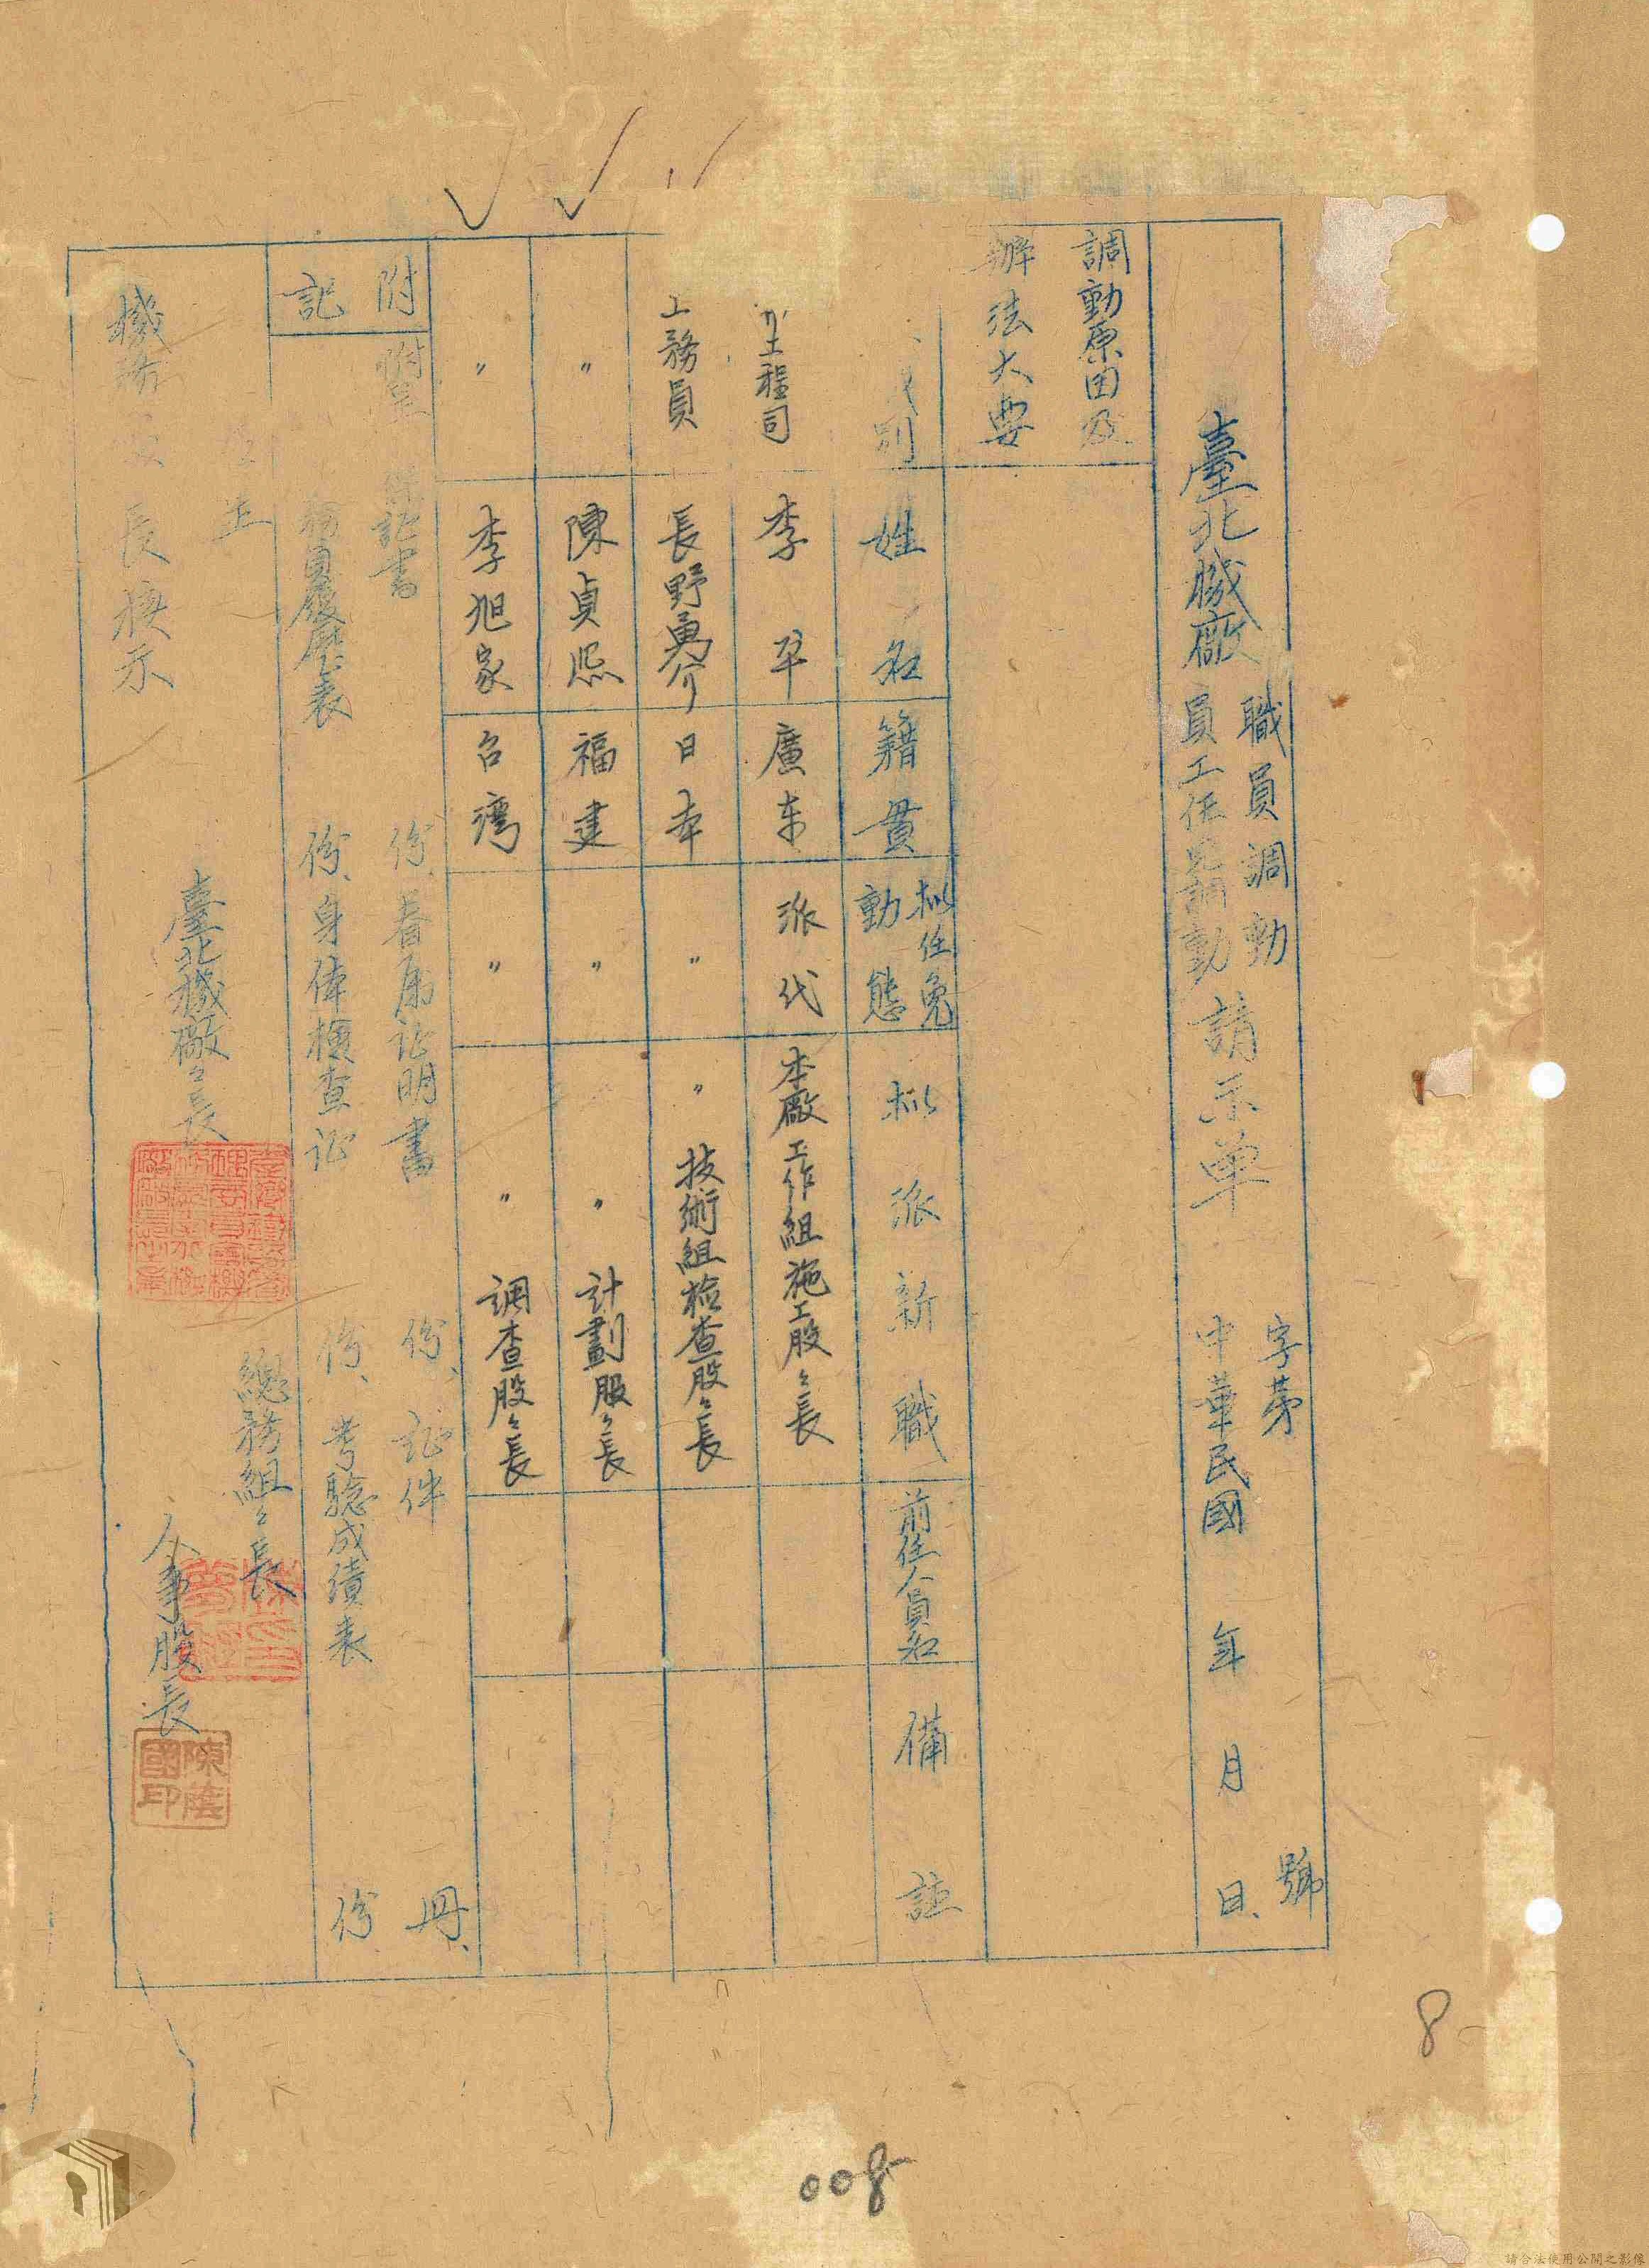 臺北機廠
職員調動
員工任免調動
請示單
字第 號
中華民國 年 月 日
調動原因及
辦法大要
別 姓名 籍貫 擬任免動態 擬派新職 前任人員名 備註
工程司 李 廣东 派代 本廠工作組施工股々長
工務員 長野勇介 日本 〃 〃 技術組检查股々長
〃 陳貞熙 福建 〃 〃 計劃股々長
〃 李旭家 台湾 〃 〃 調查股々長
附記
附呈 証書 份、眷屬証明書 份、証件 冊、
務員履歷表 份、身体檢查証 份、考驗成績表 份
長核示
臺北機廠々長
總務組々長
人事股長
陳蔭國印
8
008
請合法使用公開之影像